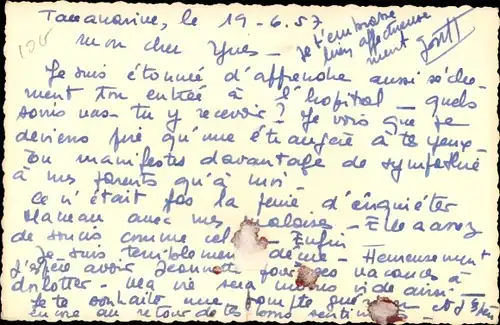 Tananarive, le 19-6.57
100
Mon cher Yves -
Je t'embrasse
bien affectueuse
ment
Je suis étonnée d'apprendre aussi sèche-
ment ton entrée à l'hopital - quels
soins vas-tu y recevoir ? Je vois que je
deviens pire qu'une étrangère à tes yeux -
Tu manifestes davantage de sympathie
à mes parents qu'à moi -
Ce n'était pas la peine d'inquiéter
Maman avec mes malaises - Elle a assez
de soucis comme cela - Enfin
Je suis terriblement déçue - Heureusement
j'espère avoir Jeannette pour les vacances à
- Ma vie sera moins vide ainsi -
Je te souhaite une prompte
au retour de tes bons